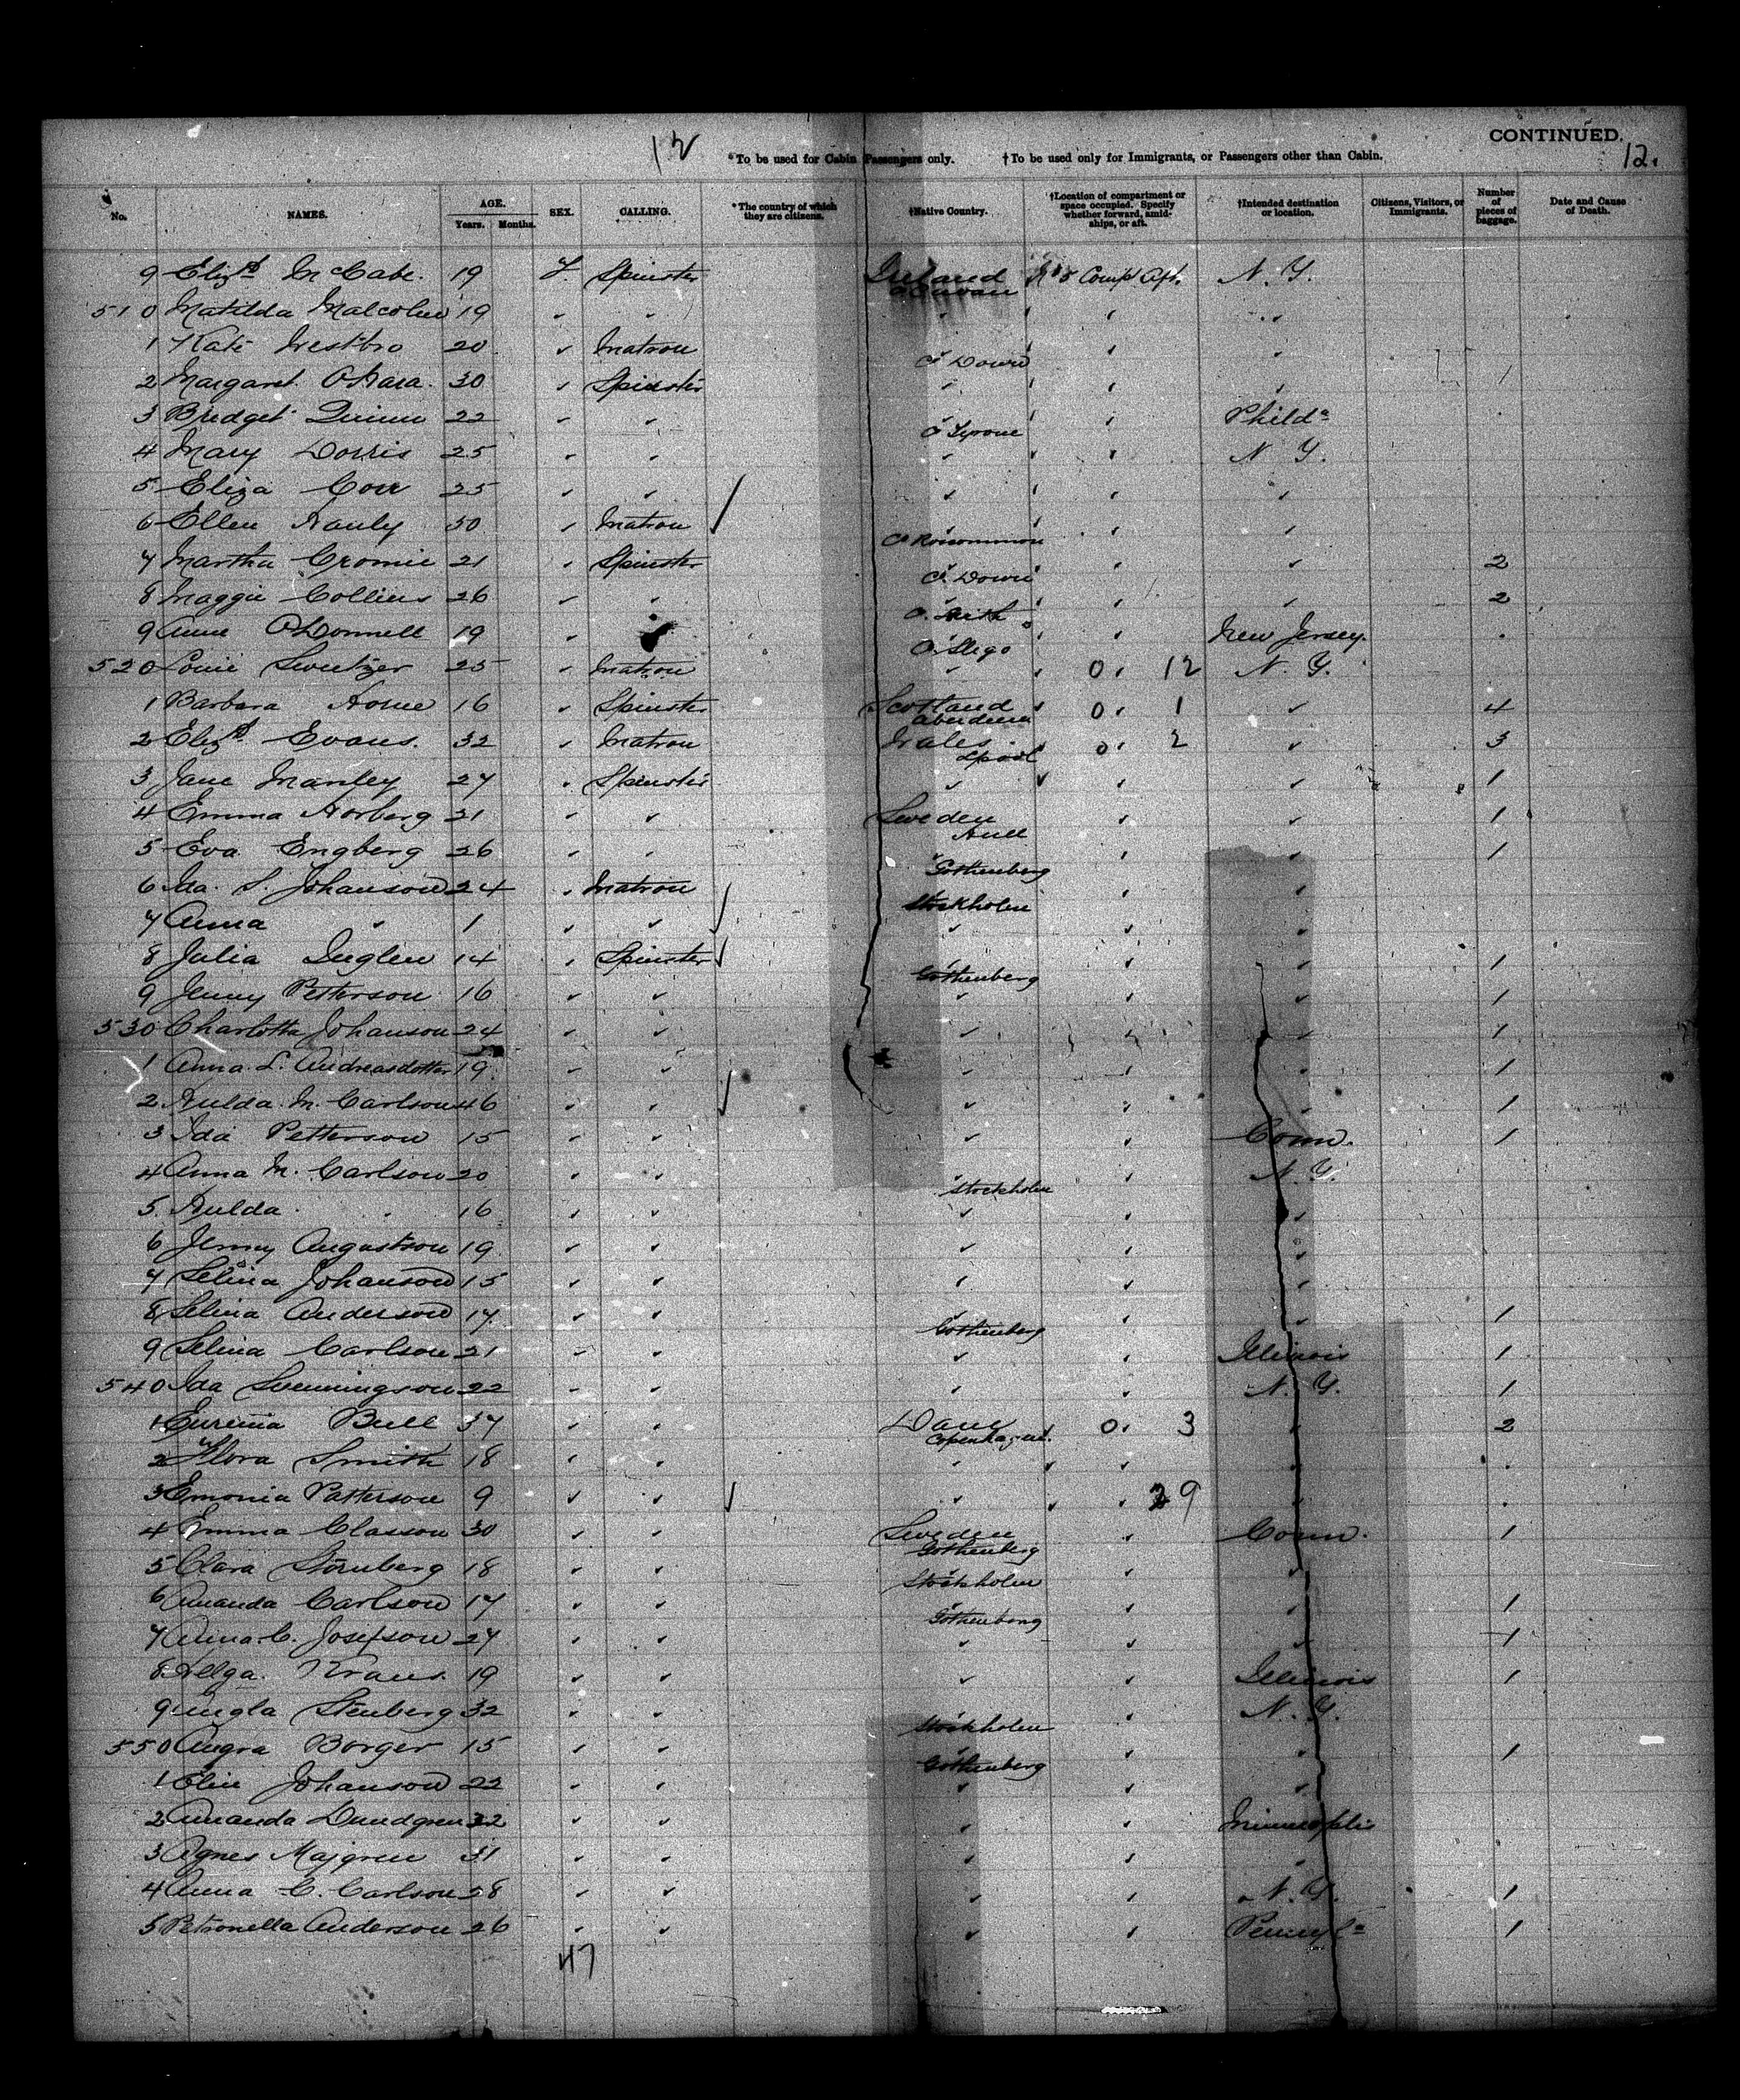 CONTINUED.
12 *To be used for Cabin Passengers only. †To be used only for Immigrants, or Passengers other than Cabin. 12.
No. NAMES. AGE. Years. Months. SEX. CALLING. *The country of which they are citizens. †Native Country. †Location of compartment or space occupied. Specify whether forward, amidships, or aft. †Intended destination or location. Citizens, Visitors, or Immigrants. Number of pieces of baggage. Date and Cause of Death.
9 Elizth McCabe. 19 F. Spinster Ireland Cavan Compt Aft. N. Y.
510 Matilda Malcolm 19 " "
1 Kate Westbro 20 " Matron Co Down
2 Margaret O'Hara. 30 " Spinster
3 Bridget Quinn 22 " " Co Tyrone Philda
4 Mary Dorris 25 " " N. Y.
5 Eliza Corr 25 " "
6 Ellen Hanly 30 " Matron Co Roscommon
7 Martha Cromie 21 " Spinster Co Down 2
8 Maggie Collins 26 " " 2
9 Anne O'Donnell 19 " " Co Sligo New Jersey.
520 Louie Sweetzer 25 " Matron " 0. 12 N. Y.
1 Barbara Horne 16 " Spinster Scotland Aberdeen 0. 1 " 4
2 Elizth Evans. 32 " Matron Wales Lpool 0. 2 " 3
3 Jane Manley 27 " Spinster " 1
4 Emma Norberg 21 " " Sweden Hull 1
5 Eva Engberg 26 " " Gothenberg 1
6 Ida. S. Johanson 24 " Matron Stockholm
7 Anna " 1 " "
8 Julia Inglen 14 " Spinster Gothenberg 1
9 Jenny Petterson 16 " " 1
530 Charlotta Johanson 24 " " 1
1 Anna. L. Andreasdotter 19 " " 1
2 Hulda. M. Carlson 46 " " 1
3 Ida Petterson 15 " " Conn. 1
4 Anna M. Carlson 20 " " Stockholm N. Y.
5 Hulda " 16 " "
6 Jenny Augustson 19 " "
7 Selina Johanson 15 " "
8 Selina Anderson 17 " " Gothenberg 1
9 Selina Carlson 21 " " Illinois 1
540 Ida Svenningson 22 " " N. Y. 1
1 Bull 37 " " Dane Copenhagen. 0. 3 " 2
2 Flora Smith 18 " "
3 Emonia Patterson 9 " " 29
4 Emma Classon 30 " " Sweden Gothenberg Conn. 1
5 Clara Stornberg 18 " " Stockholm
6 Amanda Carlson 17 " " Gothenberg 1
7 Anna. C. Josefson 27 " " 1
8 Helga. Kraus. 19 " " Illinois 1
9 Stenberg 32 " " Stockholm N. Y.
550 Borger 15 " " Gothenberg 1
1 Elin Johanson 22 " "
2 Amanda Dundgren 32 " " Minneapolis
3 Agnes Majgren 31 " "
4 Anna C. Carlson 28 " " N. Y. 1
5 Petronella Anderson 26 " " 1
47